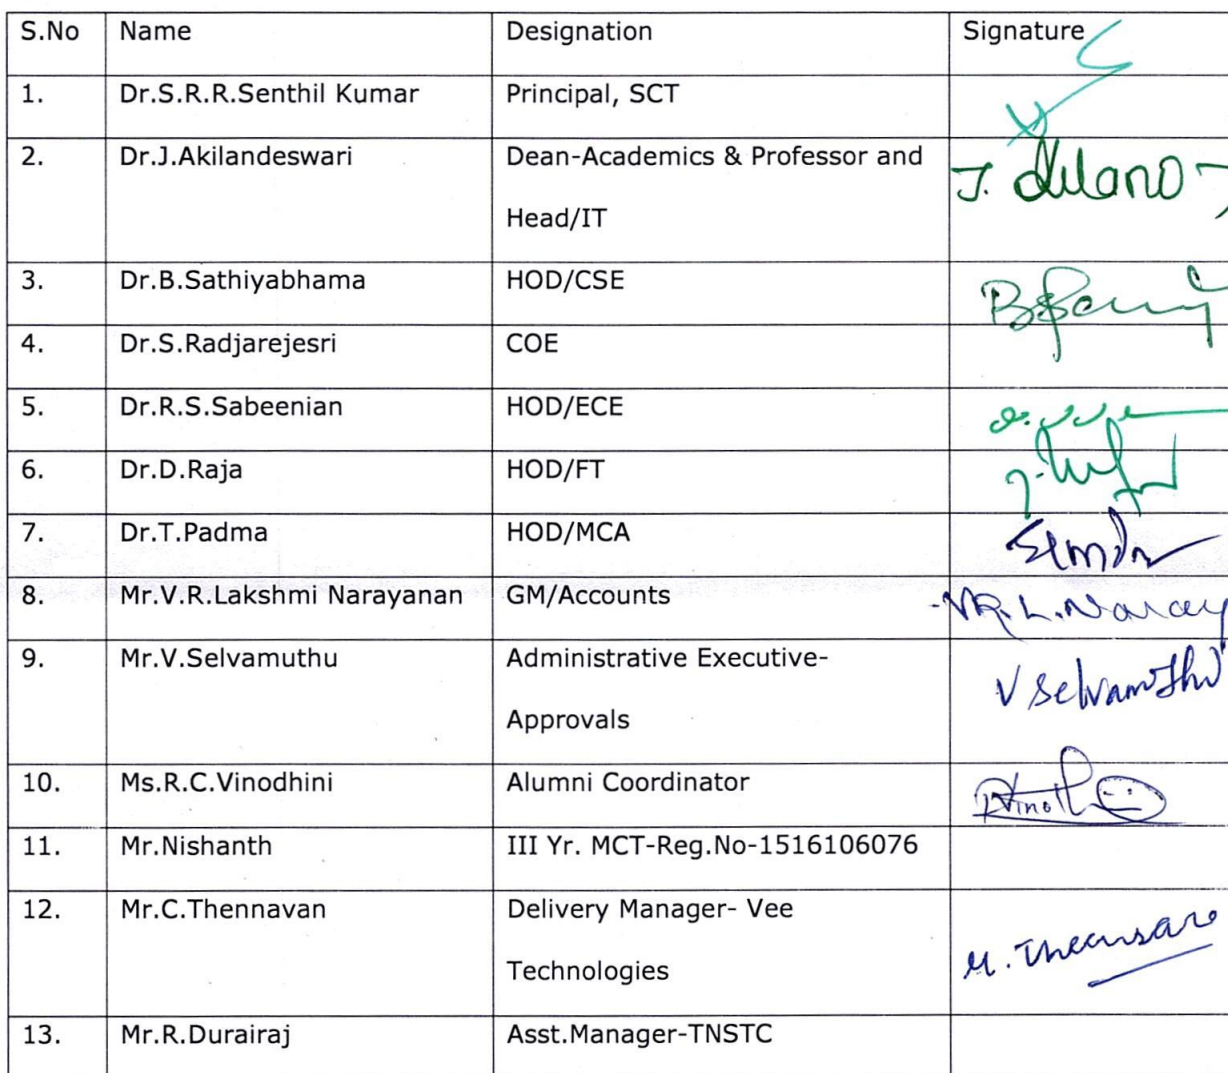 S.No Name Designation Signature
1. Dr.S.R.R.Senthil Kumar Principal, SCT
2. Dr.J.Akilandeswari Dean-Academics & Professor and
Head/IT
3. Dr.B.Sathiyabhama HOD/CSE
4. Dr.S.Radjarejesri COE
5. Dr.R.S.Sabeenian HOD/ECE
6. Dr.D.Raja HOD/FT
7. Dr.T.Padma HOD/MCA
8. Mr.V.R.Lakshmi Narayanan GM/Accounts
9. Mr.V.Selvamuthu Administrative Executive- V Selvamuthu
Approvals
10. Ms.R.C.Vinodhini Alumni Coordinator
11. Mr.Nishanth III Yr. MCT-Reg.No-1516106076
12. Mr.C.Thennavan Delivery Manager- Vee
Technologies
13. Mr.R.Durairaj Asst.Manager-TNSTC